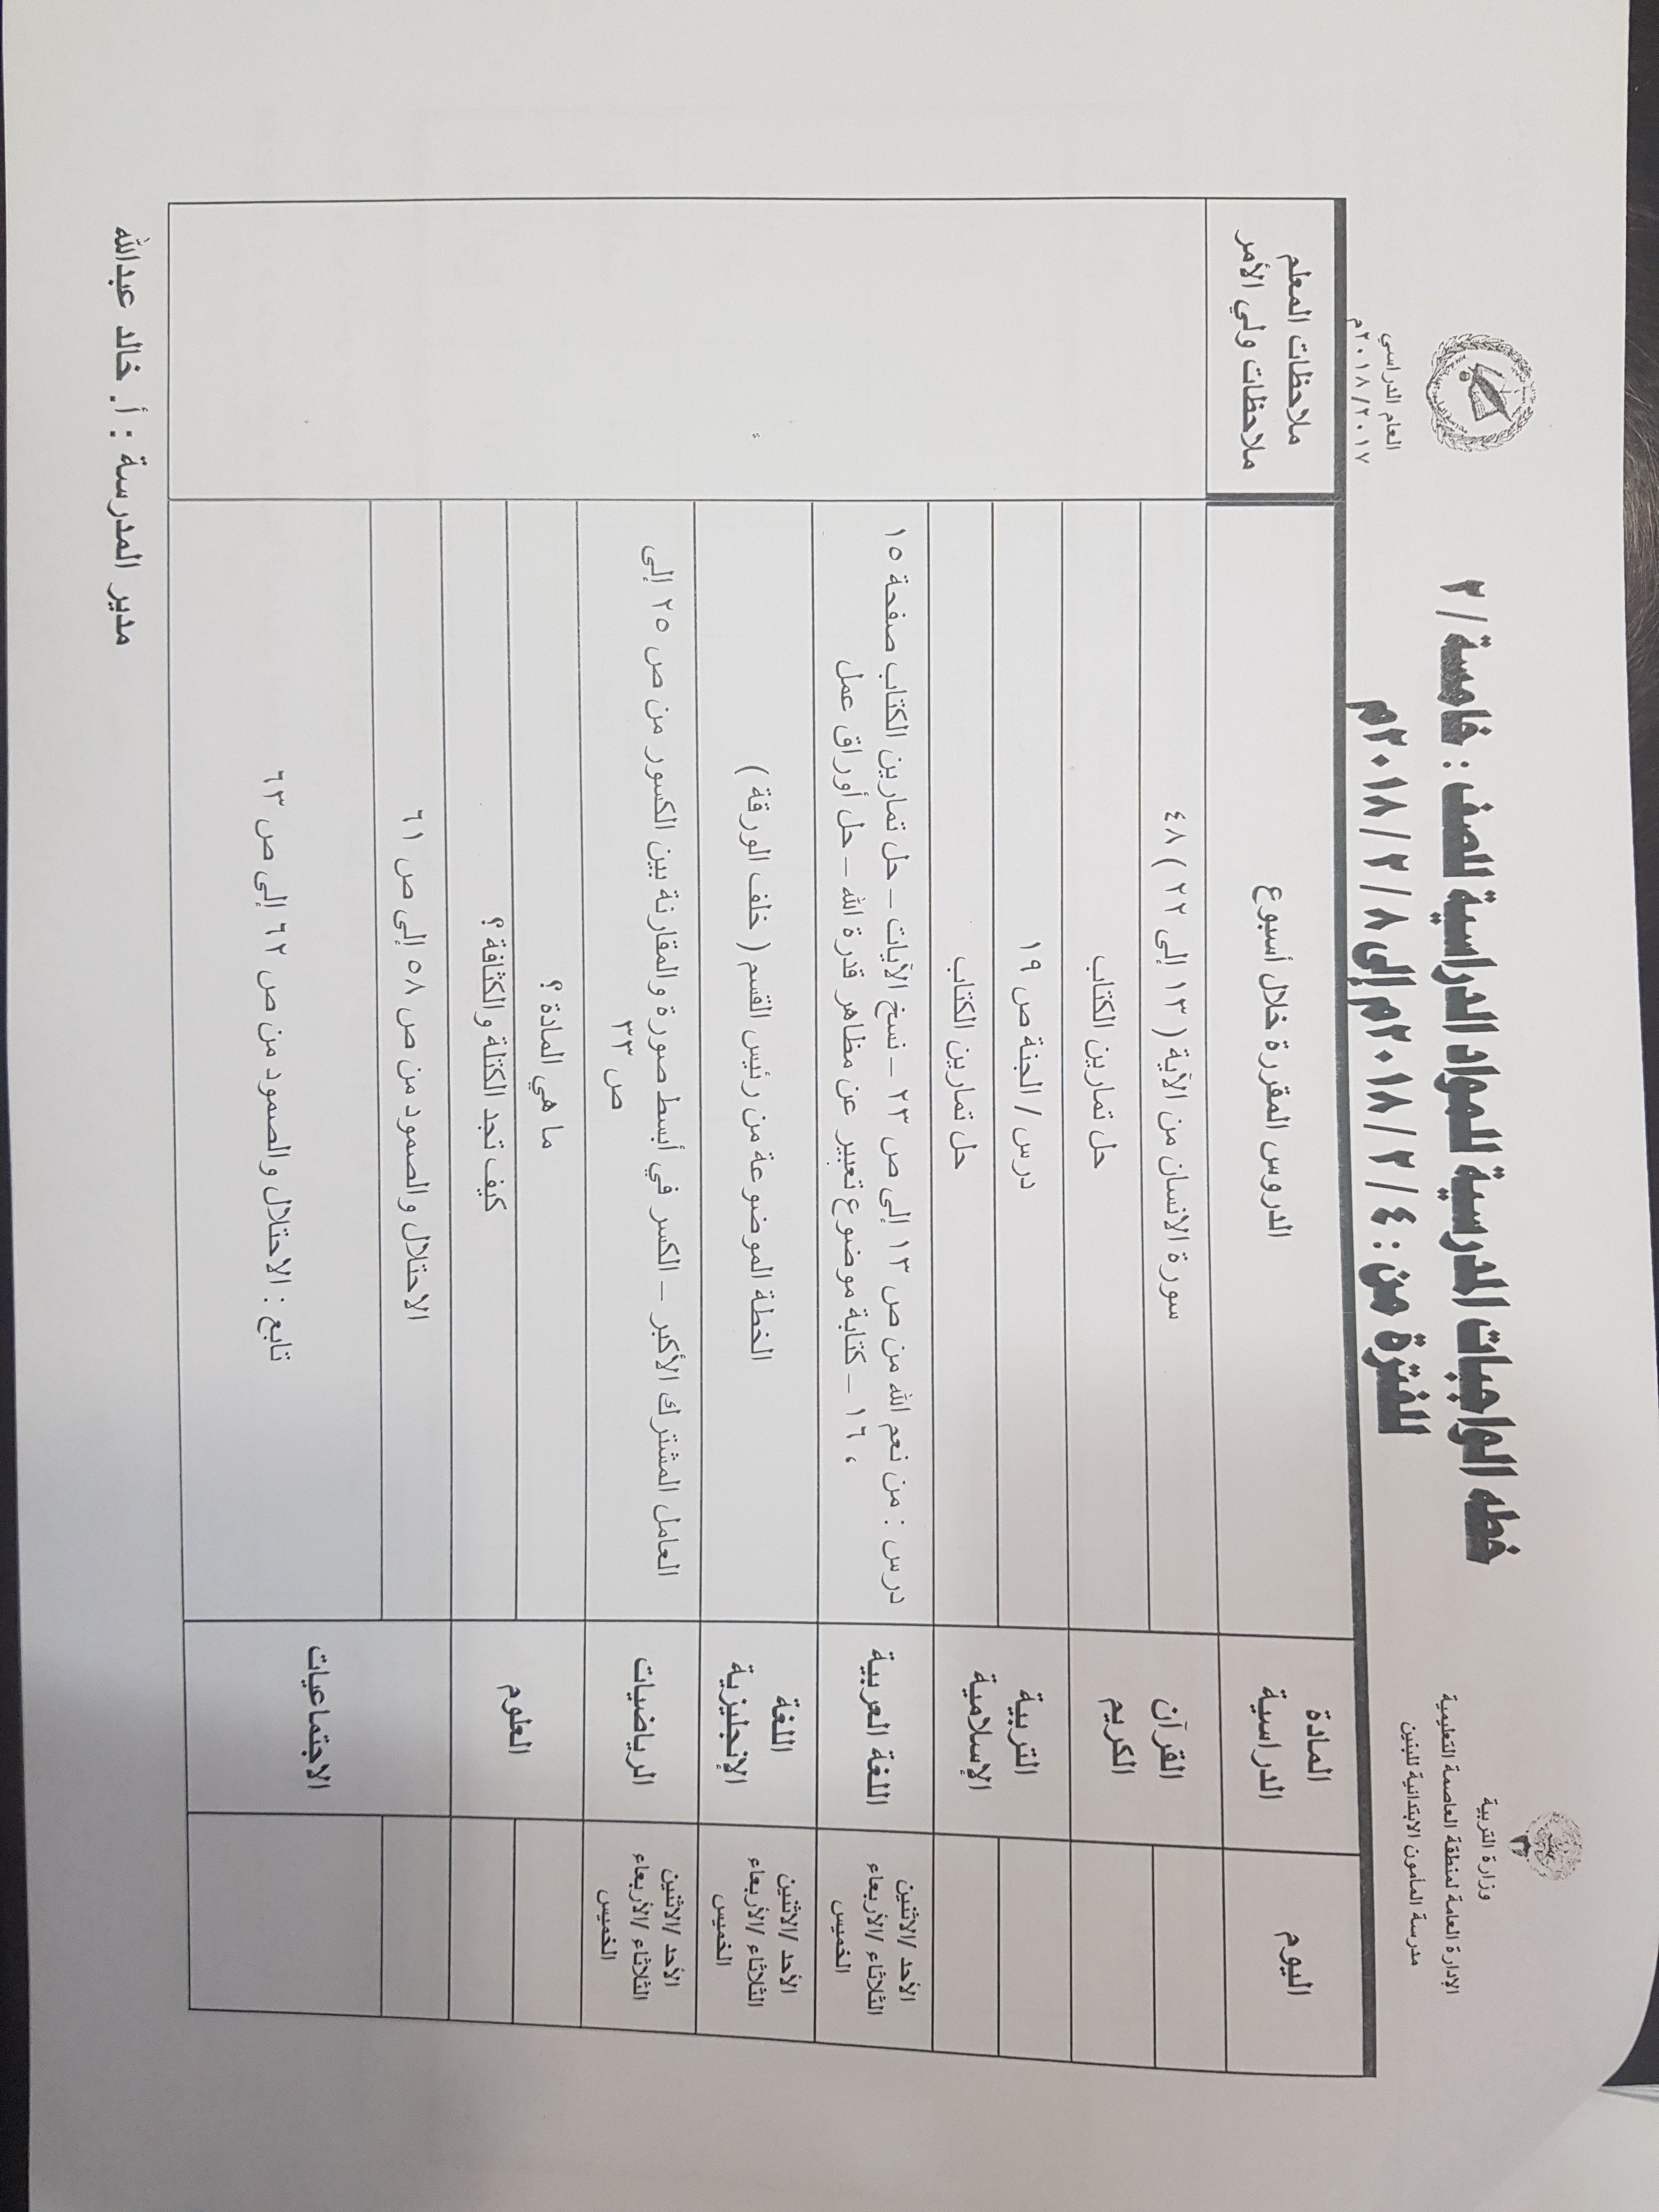 وزارة التربية
الإدارة العامة لمنطقة العاصمة التعليمية
مدرسة المأمون الابتدائية للبنين
خطه الواجبات المدرسية للمواد الدراسية للصف : خامسة / ٢
للفترة من : ٤ / ٢ / ٢٠١٨م إلى ٨ / ٢ / ٢٠١٨م
العام الدراسي
٢٠١٧/٢٠١٨م
اليوم
المادة
الدراسية
الدروس المقررة خلال أسبوع
ملاحظات المعلم
ملاحظات ولي الأمر
القرآن
الكريم
سورة الانسان من الآية ( ١٣ إلى ٢٢ ) ٤٨
حل تمارين الكتاب
التربية
الإسلامية
درس / الجنة ص ١٩
حل تمارين الكتاب
الأحد /الاثنين
الثلاثاء /الأربعاء
الخميس
اللغة العربية
درس : من نعم الله من ص ١٣ إلى ص ٢٣ – نسخ الآيات – حل تمارين الكتاب صفحة ١٥
، ١٦ – كتابة موضوع تعبير عن مظاهر قدرة الله – حل أوراق عمل
الأحد /الاثنين
الثلاثاء /الأربعاء
الخميس
اللغة
الإنجليزية
الخطة الموضوعة من رئيس القسم ( خلف الورقة )
الأحد /الاثنين
الثلاثاء /الأربعاء
الخميس
الرياضيات
العامل المشترك الأكبر – الكسر في أبسط صورة والمقارنة بين الكسور من ص ٢٥ إلى
ص ٣٣
العلوم
ما هي المادة ؟
كيف تجد الكتلة والكثافة ؟
الاجتماعيات
الاحتلال والصمود من ص ٥٨ إلى ص ٦١
تابع : الاحتلال والصمود من ص ٦٢ إلى ص ٦٣
مدير المدرسة : أ. خالد عبدالله